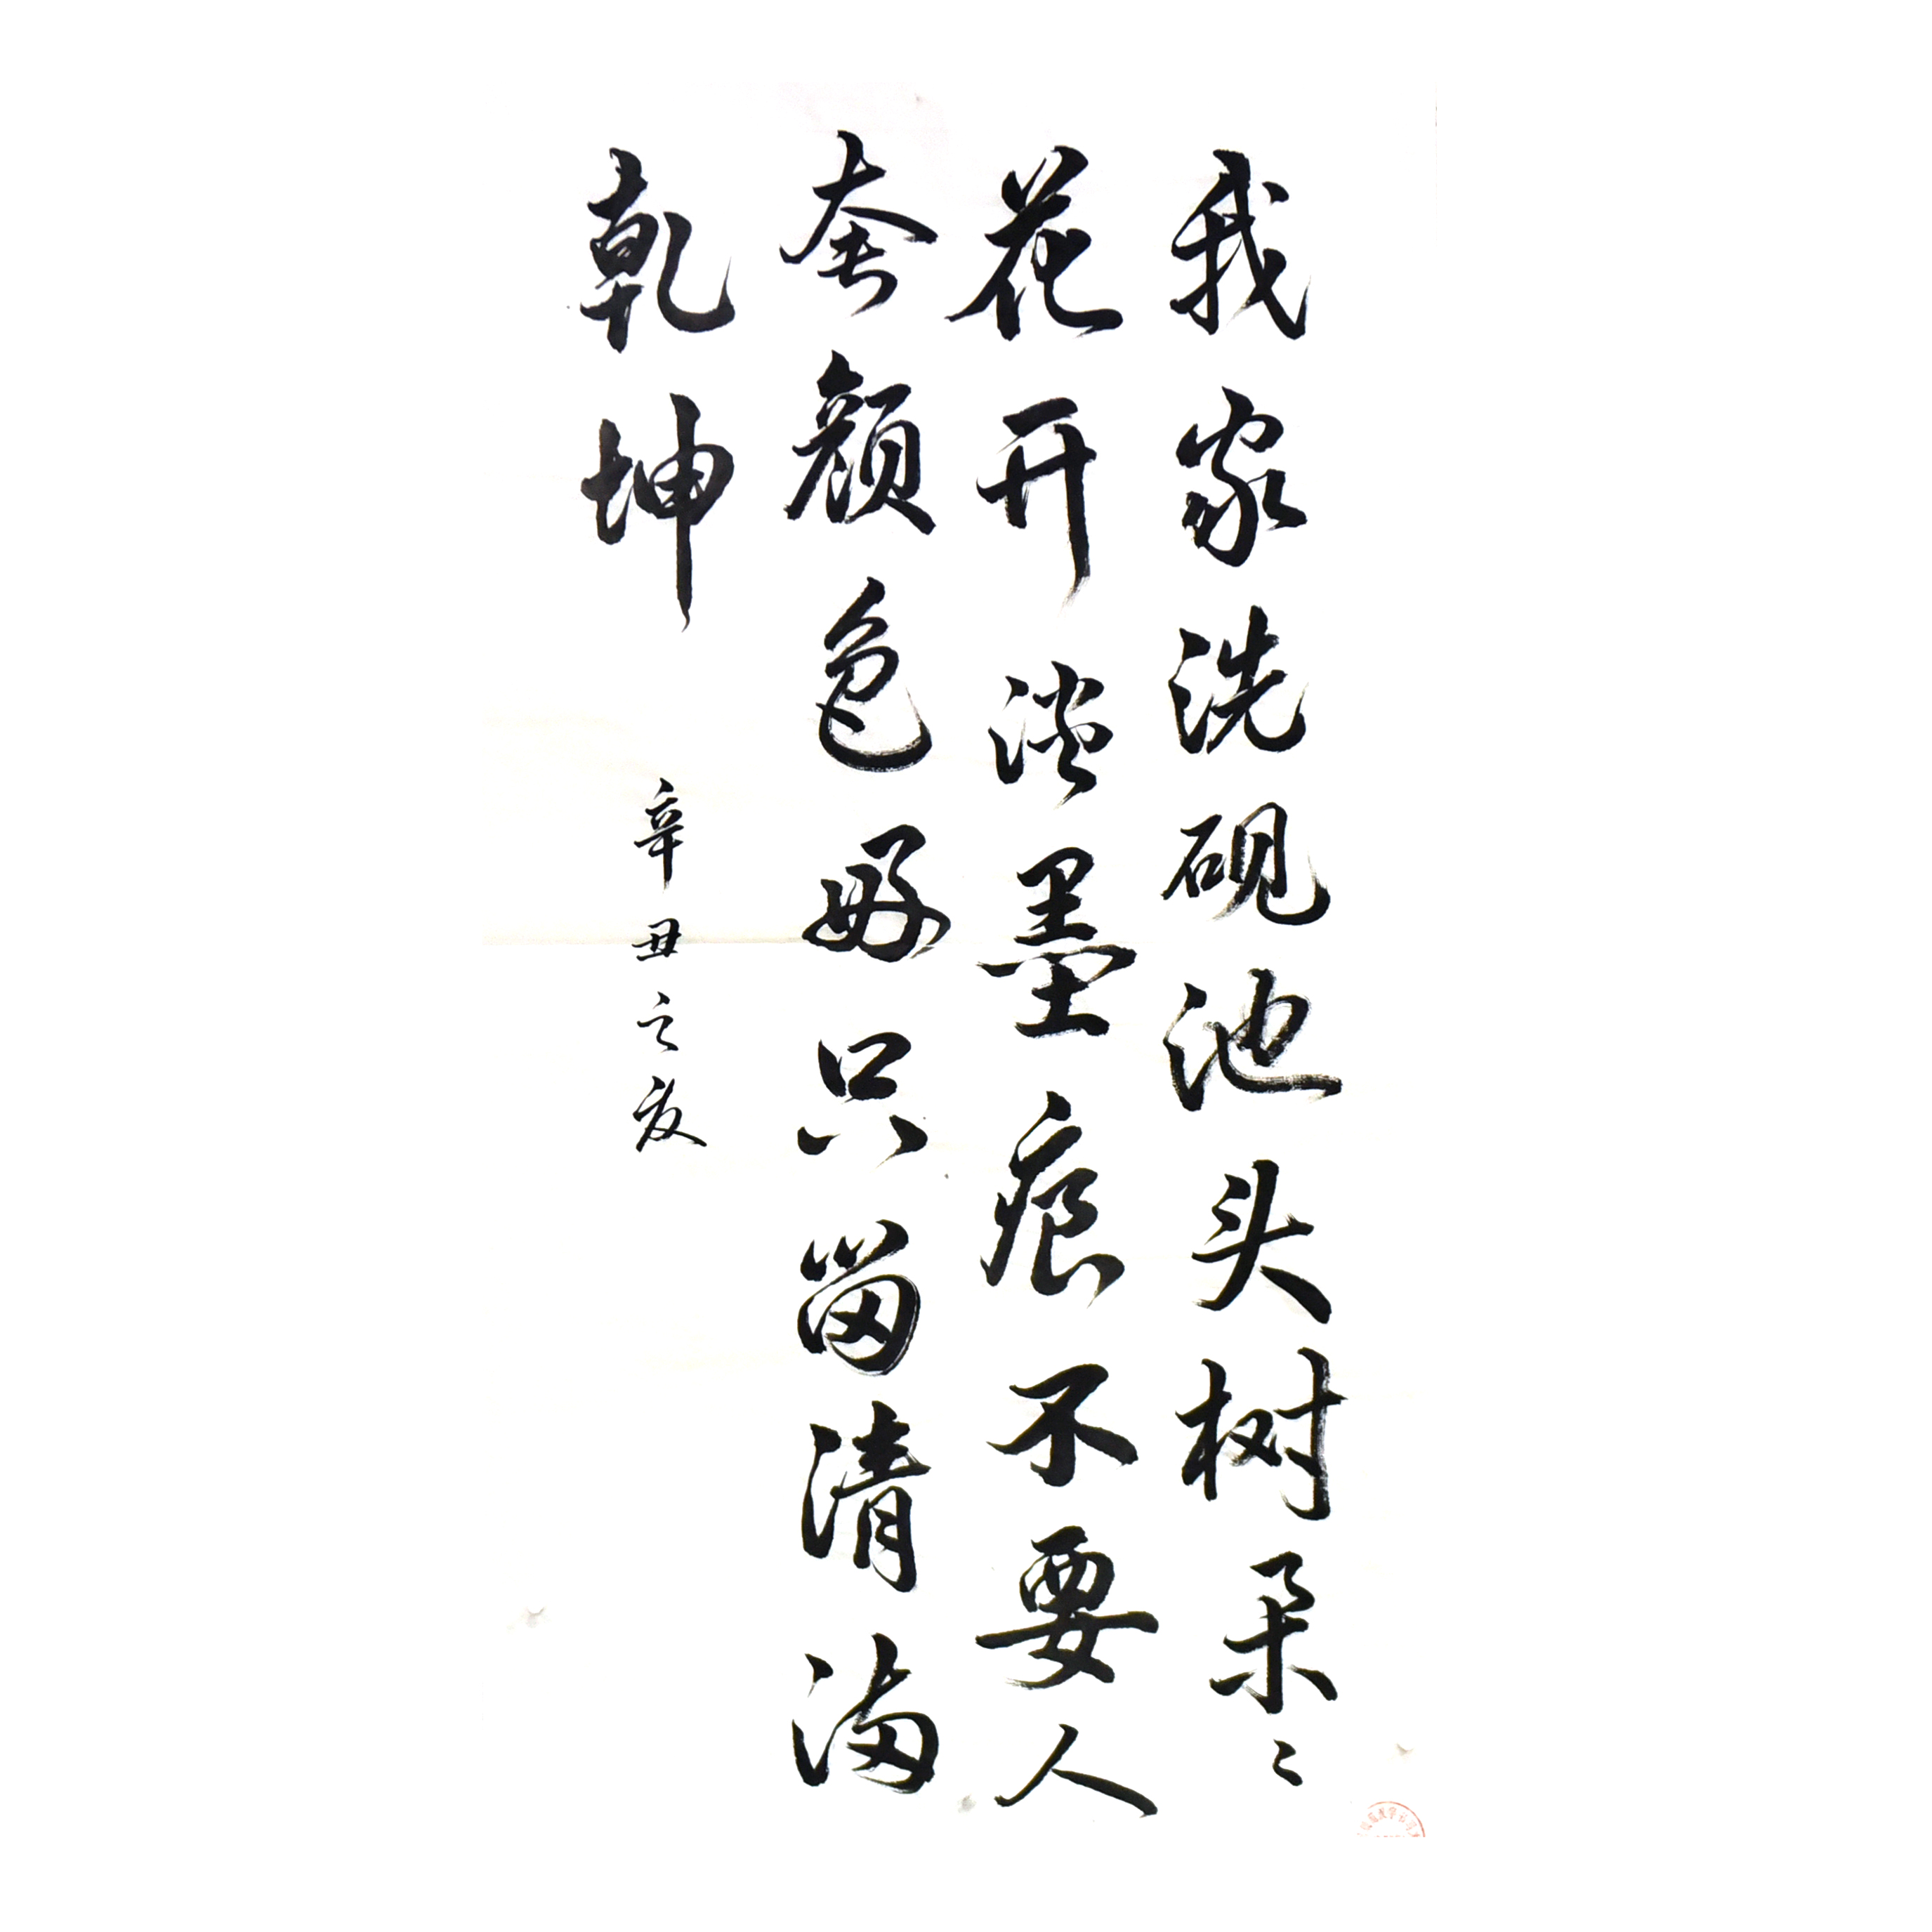 我家洗砚池头树朵〻
花开淡墨痕不要人
夸颜色好只留清满
乾坤
辛丑之